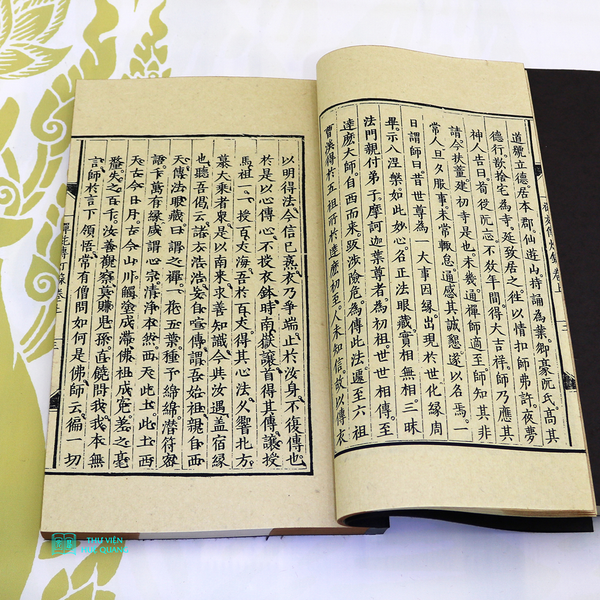 道號立德居本郡仙遊山持誦為業鄉豪阮氏高其
德行欲捨宅為寺延致居之徃以情扣師弗許夜夢
神人告曰苟從阮志不數年間得大吉祥師乃應其
請今扶董建初寺是也未幾通禪師適至師知其非
常人旦夕服事未常輙怠通感其誠懇遂以名焉一
日謂師曰昔世尊為一大事因緣出現於世化緣周
畢示入涅槃如此妙心名正法眼藏實相無相三昧
法門親付弟子摩訶迦葉尊者為初祖世世相傳至
達摩大師自西而來跋涉險危為傳此法遞至六祖
曹溪得於五祖所於達磨初至人未知信故以傳衣
以明得法今信已熟衣乃爭端止於汝身不復傳也
於是以心傳心不授衣鉢時南嶽讓首得其傳讓授
馬祖一一授百丈海吾於百丈得其心法久響北方
慕大乘者衆是以南來求善知識今與汝遇蓋宿緣
也聽吾偈云諸方浩浩妄自宣傳謂吾始祖親自西
天傳法眼藏曰謂之禪一花五葉種子綿綿潛符密
語千萬有緣咸謂心宗清淨本然西天此土此土西
天古今日月古今山川觸塗成滯佛祖成寃差之毫
釐失之百千汝善觀察莫賺兒孫直饒問我我本無
言師於言下領悟常有僧問如何是佛師云徧一切
傳灯錄卷上 三
THƯ VIỆN
HUỆ QUANG